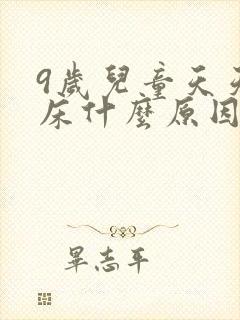 9歲兒童天天
床什麼原因
畢志平